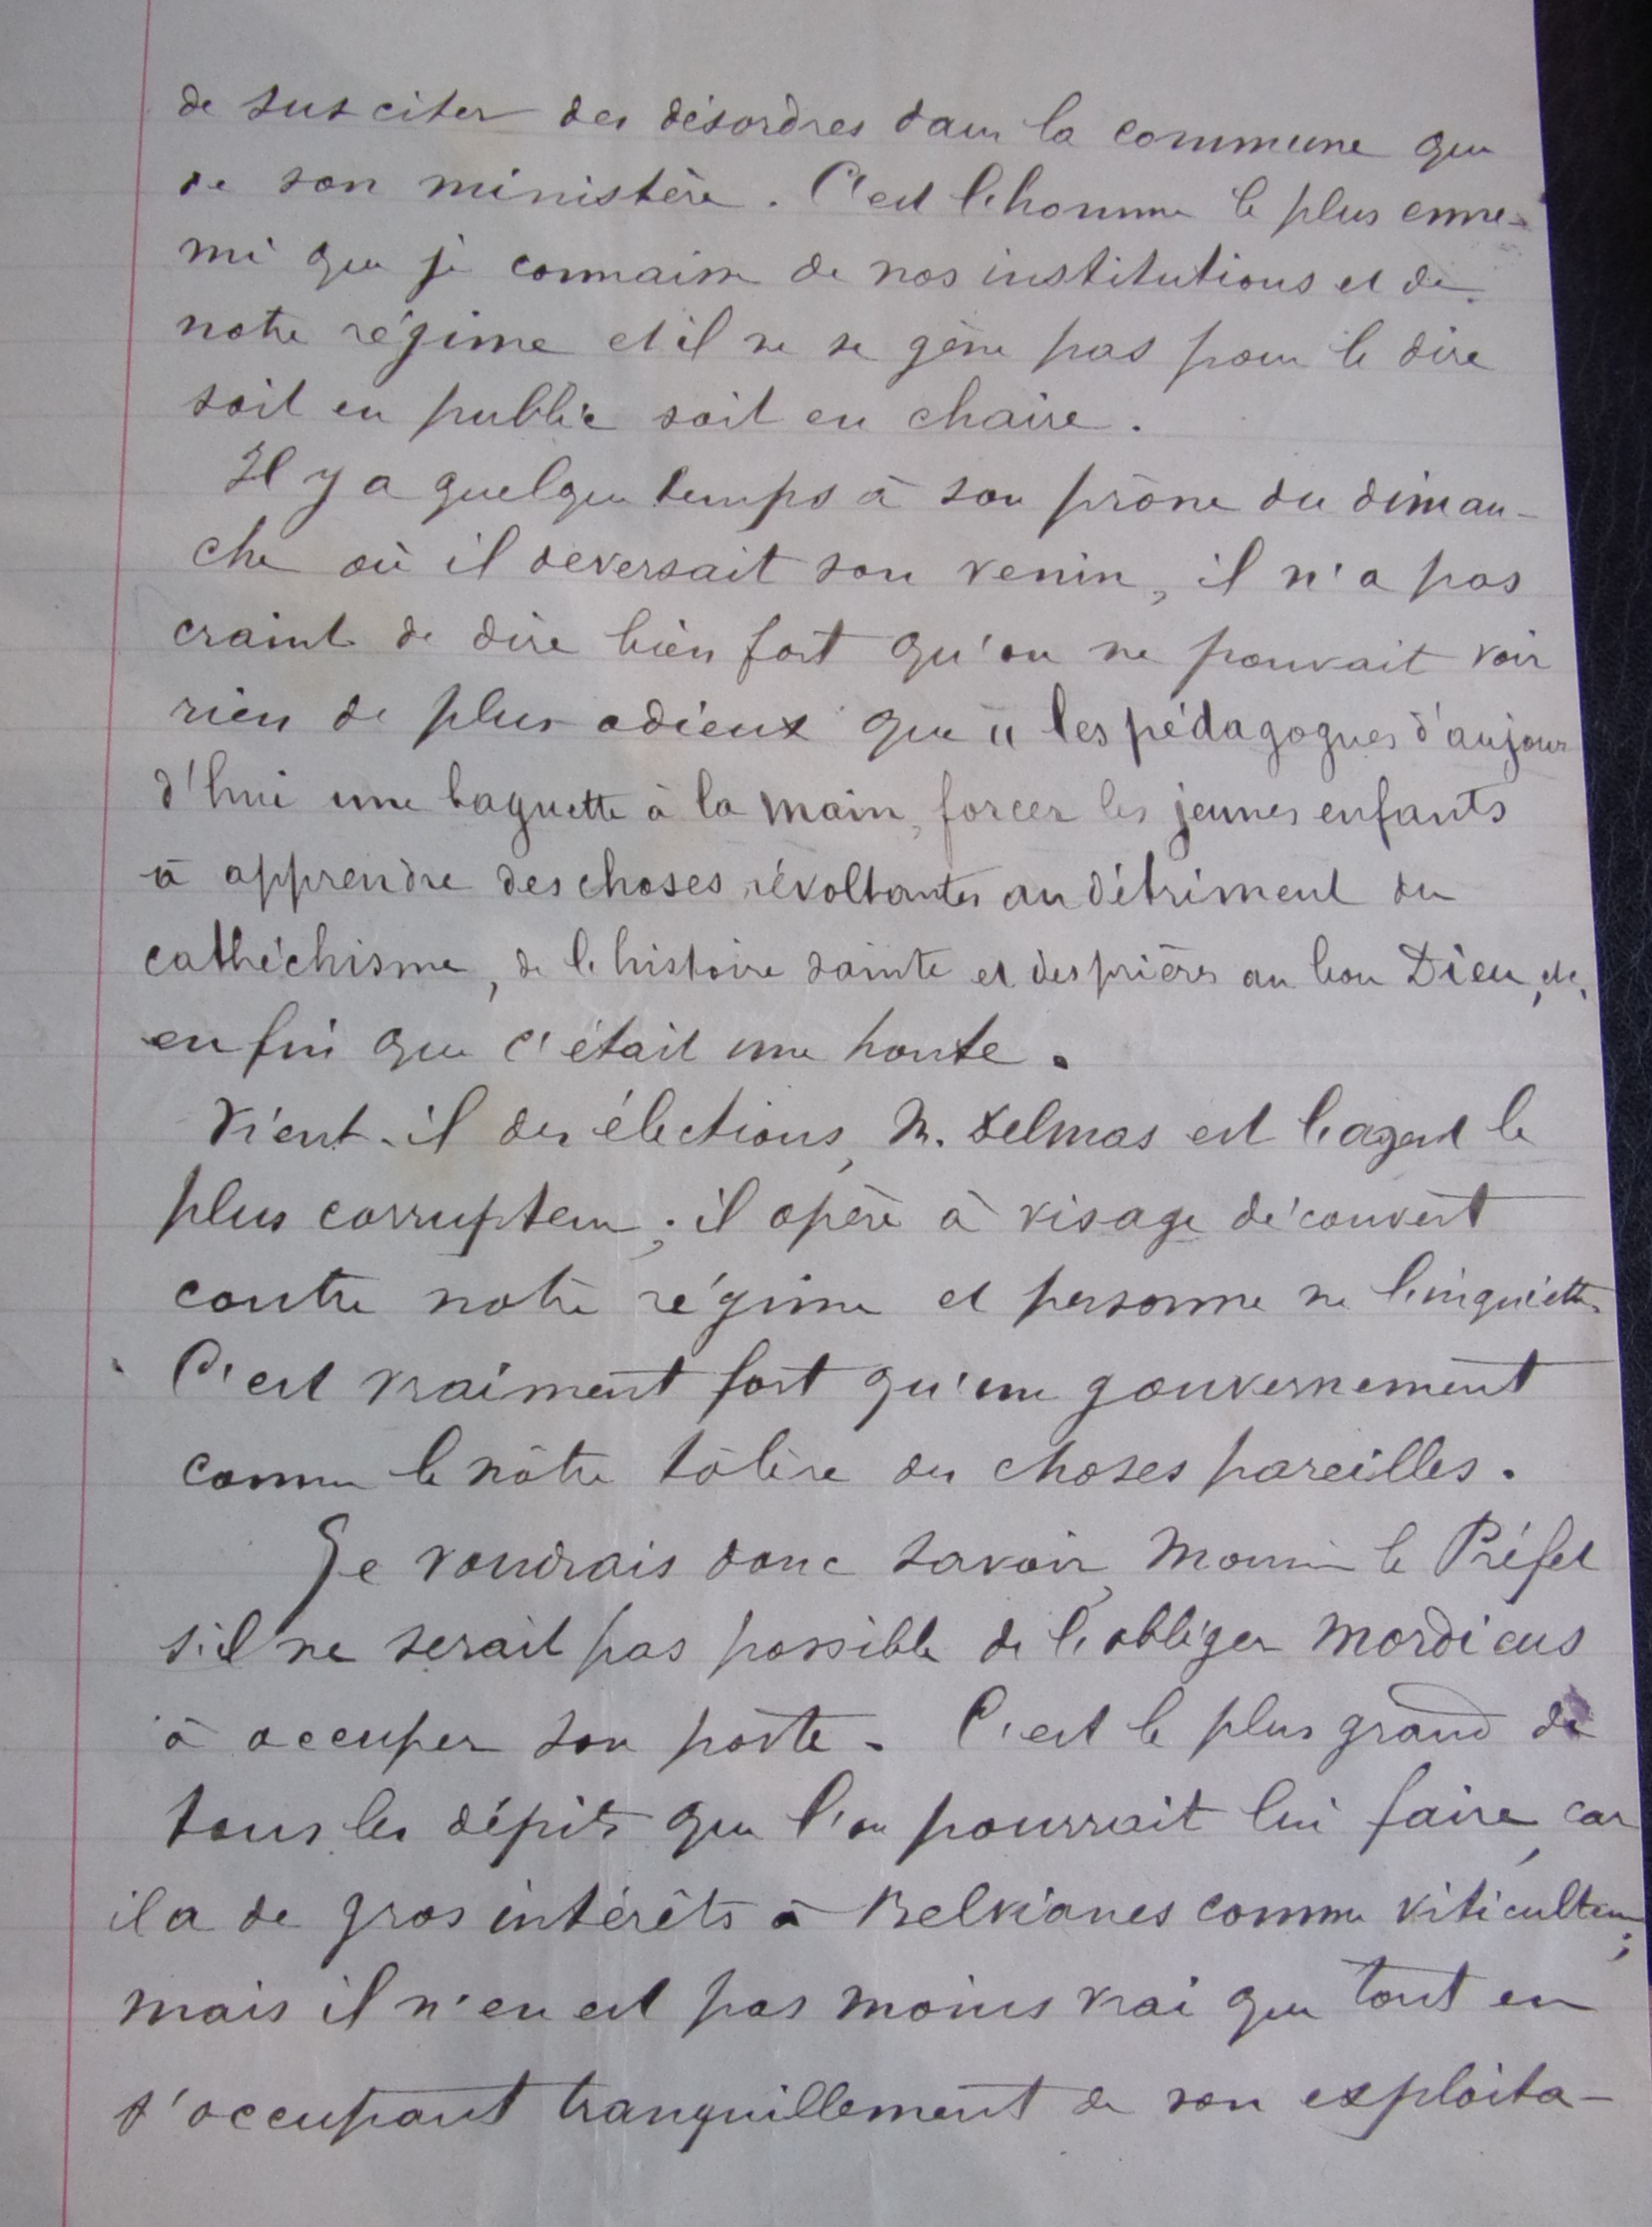 de susciter des désordres dans la commune que
de son ministère. C'est l'homme le plus enne-
mi que je connaisse de nos institutions et de
notre régime et il ne se gène pas pour le dire
soit en public soit en chaire.
Il y a quelque temps à son prône du diman-
che où il deversait son venin, il n'a pas
craint de dire bien fort qu'on ne pouvait voir
rien de plus odieux que " les pédagogues d'aujour
d'hui une baguette à la main, forcer les jeunes enfants
à apprendre des choses révoltantes au détriment du
cathéchisme, de l'histoire sainte et des prières au bon Dieu, etc,
enfin que c'était une honte.
Vient-il des élections, M. Delmas est l'agent le
plus corrupteur; il opère à visage découvert
contre notre régime et personne ne l'inquiette.
C'est vraiment fort qu'un gouvernement
comme le nôtre tôlère des choses pareilles.
Je voudrais donc savoir, Monsieur le Préfet
s'il ne serait pas possible de l'obliger mordicus
à occuper son poste. C'est le plus grand de
tous les dépits que l'on pourrait lui faire, car
il a de gros intérêts à Belvianes comme viticulteur;
mais il n'en est pas moins vrai que tout en
s'occupant tranquillement de son exploita-